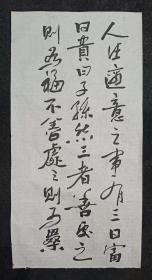 人生適意之事有三曰富
曰貴曰子孫然三者善處之
則為福不善處之則為累